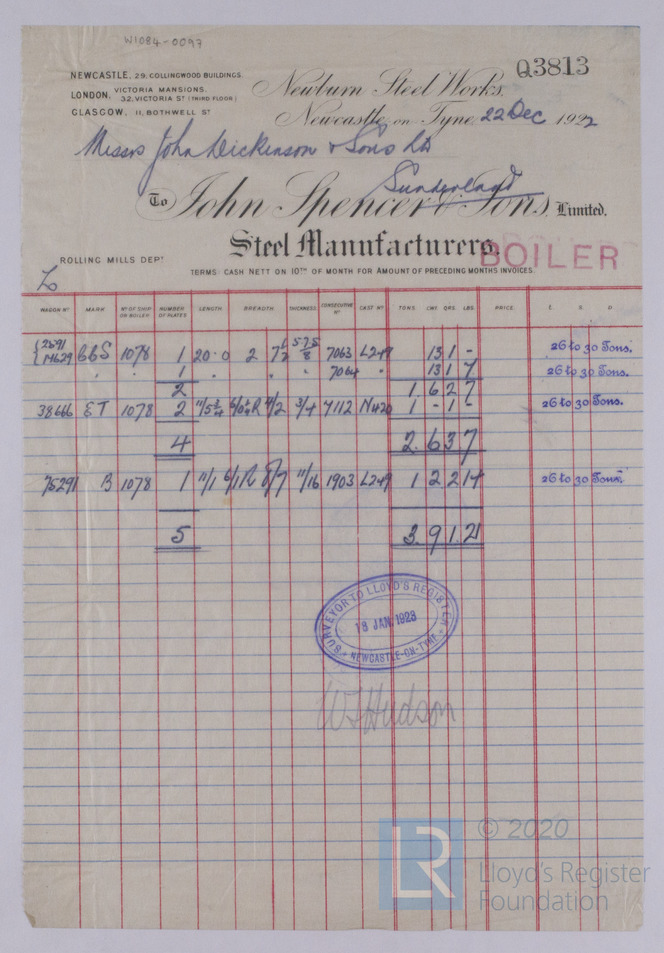 W1084-0097
Q3813
NEWCASTLE, 29, COLLINGWOOD BUILDINGS.
LONDON, VICTORIA MANSIONS, 32, VICTORIA ST (THIRD FLOOR)
GLASGOW, 11, BOTHWELL ST
Newburn Steel Works,
Newcastle on Tyne, 22 Dec 1922
Messrs John Dickinson & Sons Ld
Sunderland
To John Spencer & Sons, Limited,
Steel Manufacturers.
BOILER
ROLLING MILLS DEPT
TERMS: CASH NETT ON 10TH OF MONTH FOR AMOUNT OF PRECEDING MONTHS INVOICES.
WAGON No MARK No OF SHIP OR BOILER NUMBER OF PLATES LENGTH BREADTH THICKNESS CONSECUTIVE No CAST No TONS. CWT QRS. LBS PRICE. £. S. D.
2591
14629 66S 1078 1 20·0 2 7 1/2 575 5/8 7063 L249 13 1 - 26 to 30 Tons.
" " 1 " " " 7064 " 13 1 7 26 to 30 Tons.
2 1 6 2 7
38666 ET 1078 2 11/5 3/4 4/2 3/4 7112 N420 1 - 1 - 26 to 30 Tons.
4 2. 6 3 7
75291 B 1078 1 11/1 6/1R 8/7 11/16 1903 L249 1 2 2 14 26 to 30 Tons.
5 3. 9 1. 21
SURVEYOR TO LLOYD'S REGISTER
18 JAN. 1923
NEWCASTLE-ON-TYNE
W Hudson
LR
© 2020
Lloyd's Register
Foundation